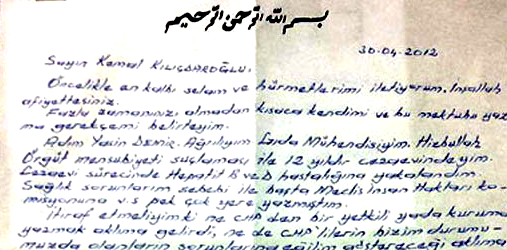 بسم الله الرحمن الرحيم
30-04-2012
Sayın Kemal KILIÇDAROĞLU,
Öncelikle en kalbi selam ve hürmetlerimi iletiyorum, İnşallah
afiyettesiniz.
Fazla zamanınızı almadan kısaca kendimi ve bu mektubu yaz
ma gerekçemi belirteyim.
Adım Yasin DEMİR. Ağrılıyım Gıda Mühendisiyim. Hizbullah
Örgüt mensubiyeti suçlaması ile 12 yıldır cezaevindeyim.
Cezaevi sürecinde Hepatit B ve D hastalığına yakalandım.
Sağlık sorunlarım sebebi ile başta Meclis İnsan Hakları ko-
misyonuna v.s pek çok yere yazmıştım.
İtiraf etmeliyim ki ne CHP den bir yetkili yada kuruma
yazmak aklıma gelirdi, ne de CHP'lilerin bizim durumu-
muzda olanların sorunlarına eğilim göstereceği aklıma